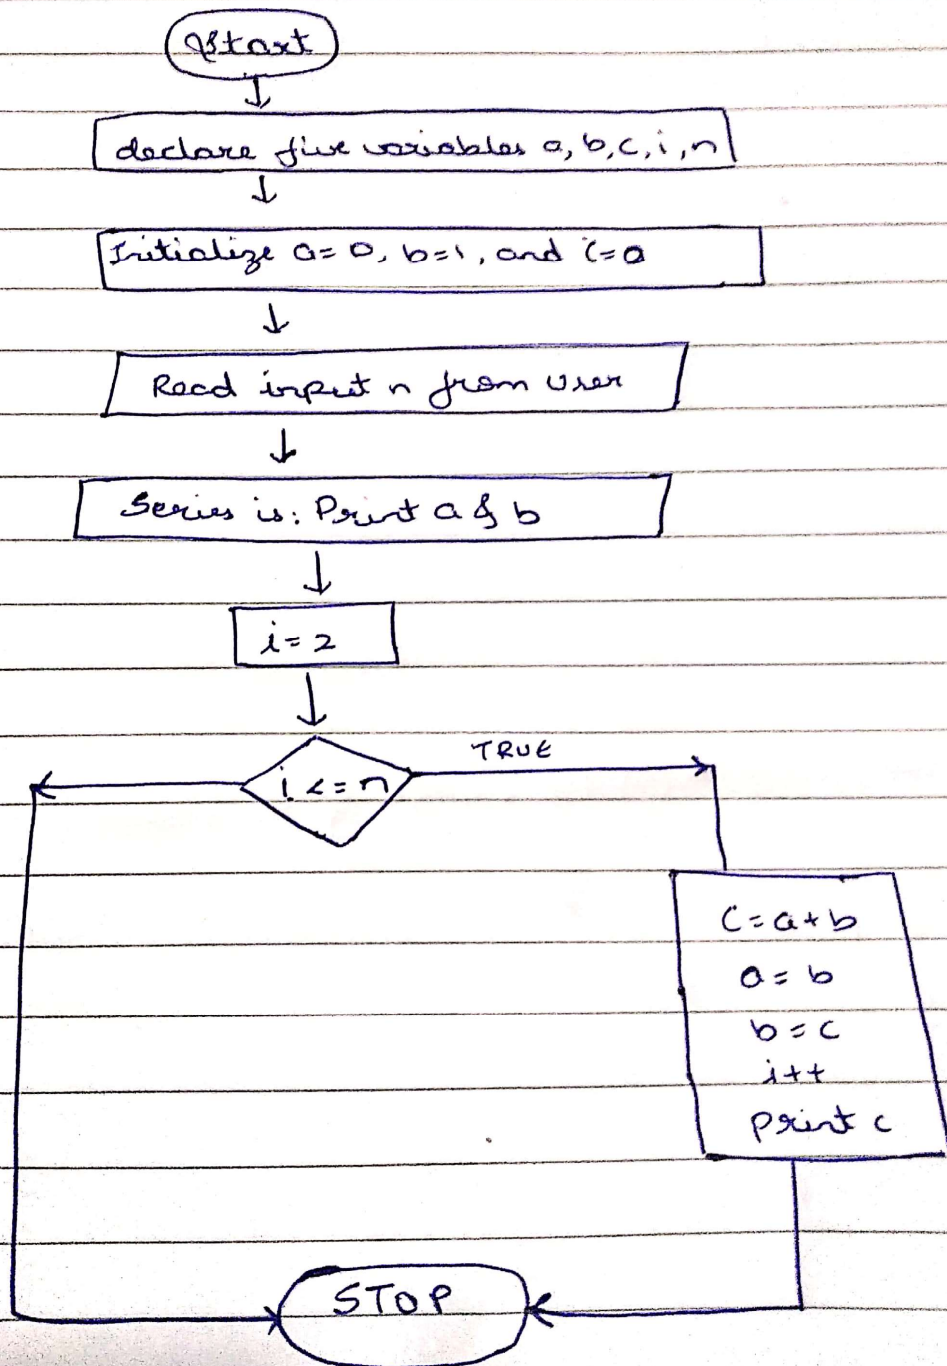 Start
declare five variables a, b, c, i, n
Initialize a=0, b=1, and i=0
Read input n from user
Series is: Print a & b
i=2
i<=n
TRUE
C=a+b
a=b
b=c
i++
print c
STOP